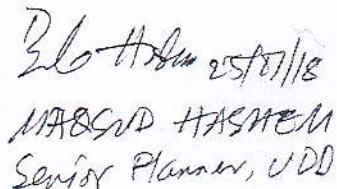 25/07/18
MAQSUD HASHEM
Senior Planner, UDD